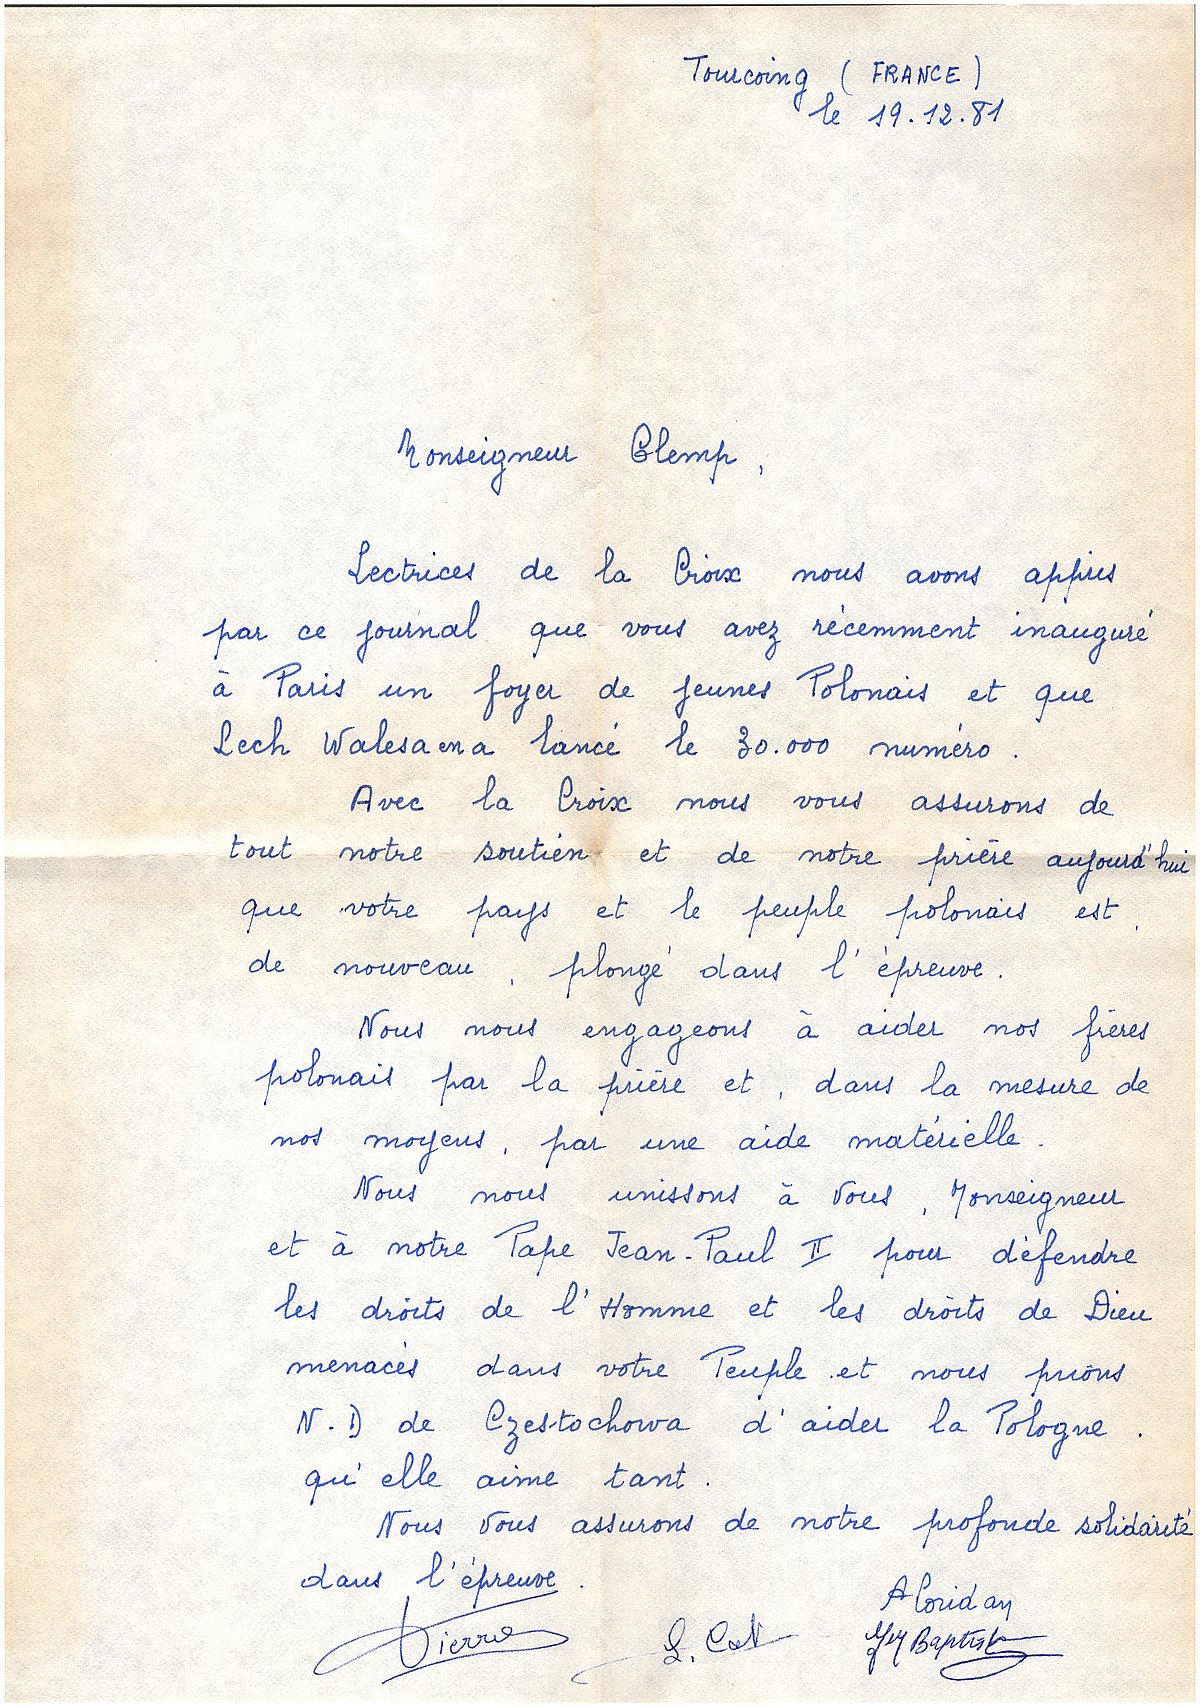 Tourcoing (FRANCE)
le 19.12.81
Monseigneur Glemp,
Lectrices de la Croix nous avons appris
par ce journal que vous avez récemment inauguré
à Paris un foyer de jeunes Polonais et que
Lech Walesa en a lancé le 30.000 numéro.
Avec la Croix nous vous assurons de
tout notre soutien et de notre prière aujourd'hui
que votre pays et le peuple polonais est,
de nouveau, plongé dans l'épreuve.
Nous nous engageons à aider nos frères
polonais par la prière et, dans la mesure de
nos moyens, par une aide matérielle.
Nous nous unissons à Vous, Monseigneur
et à notre Pape Jean-Paul II pour défendre
les droits de l'Homme et les droits de Dieu
menacés dans votre Peuple et nous prions
N.D de Czestochowa d'aider la Pologne.
qu'elle aime tant.
Nous Vous assurons de notre profonde solidarité
dans l'épreuve.
A Coridan
Pierre
Baptist